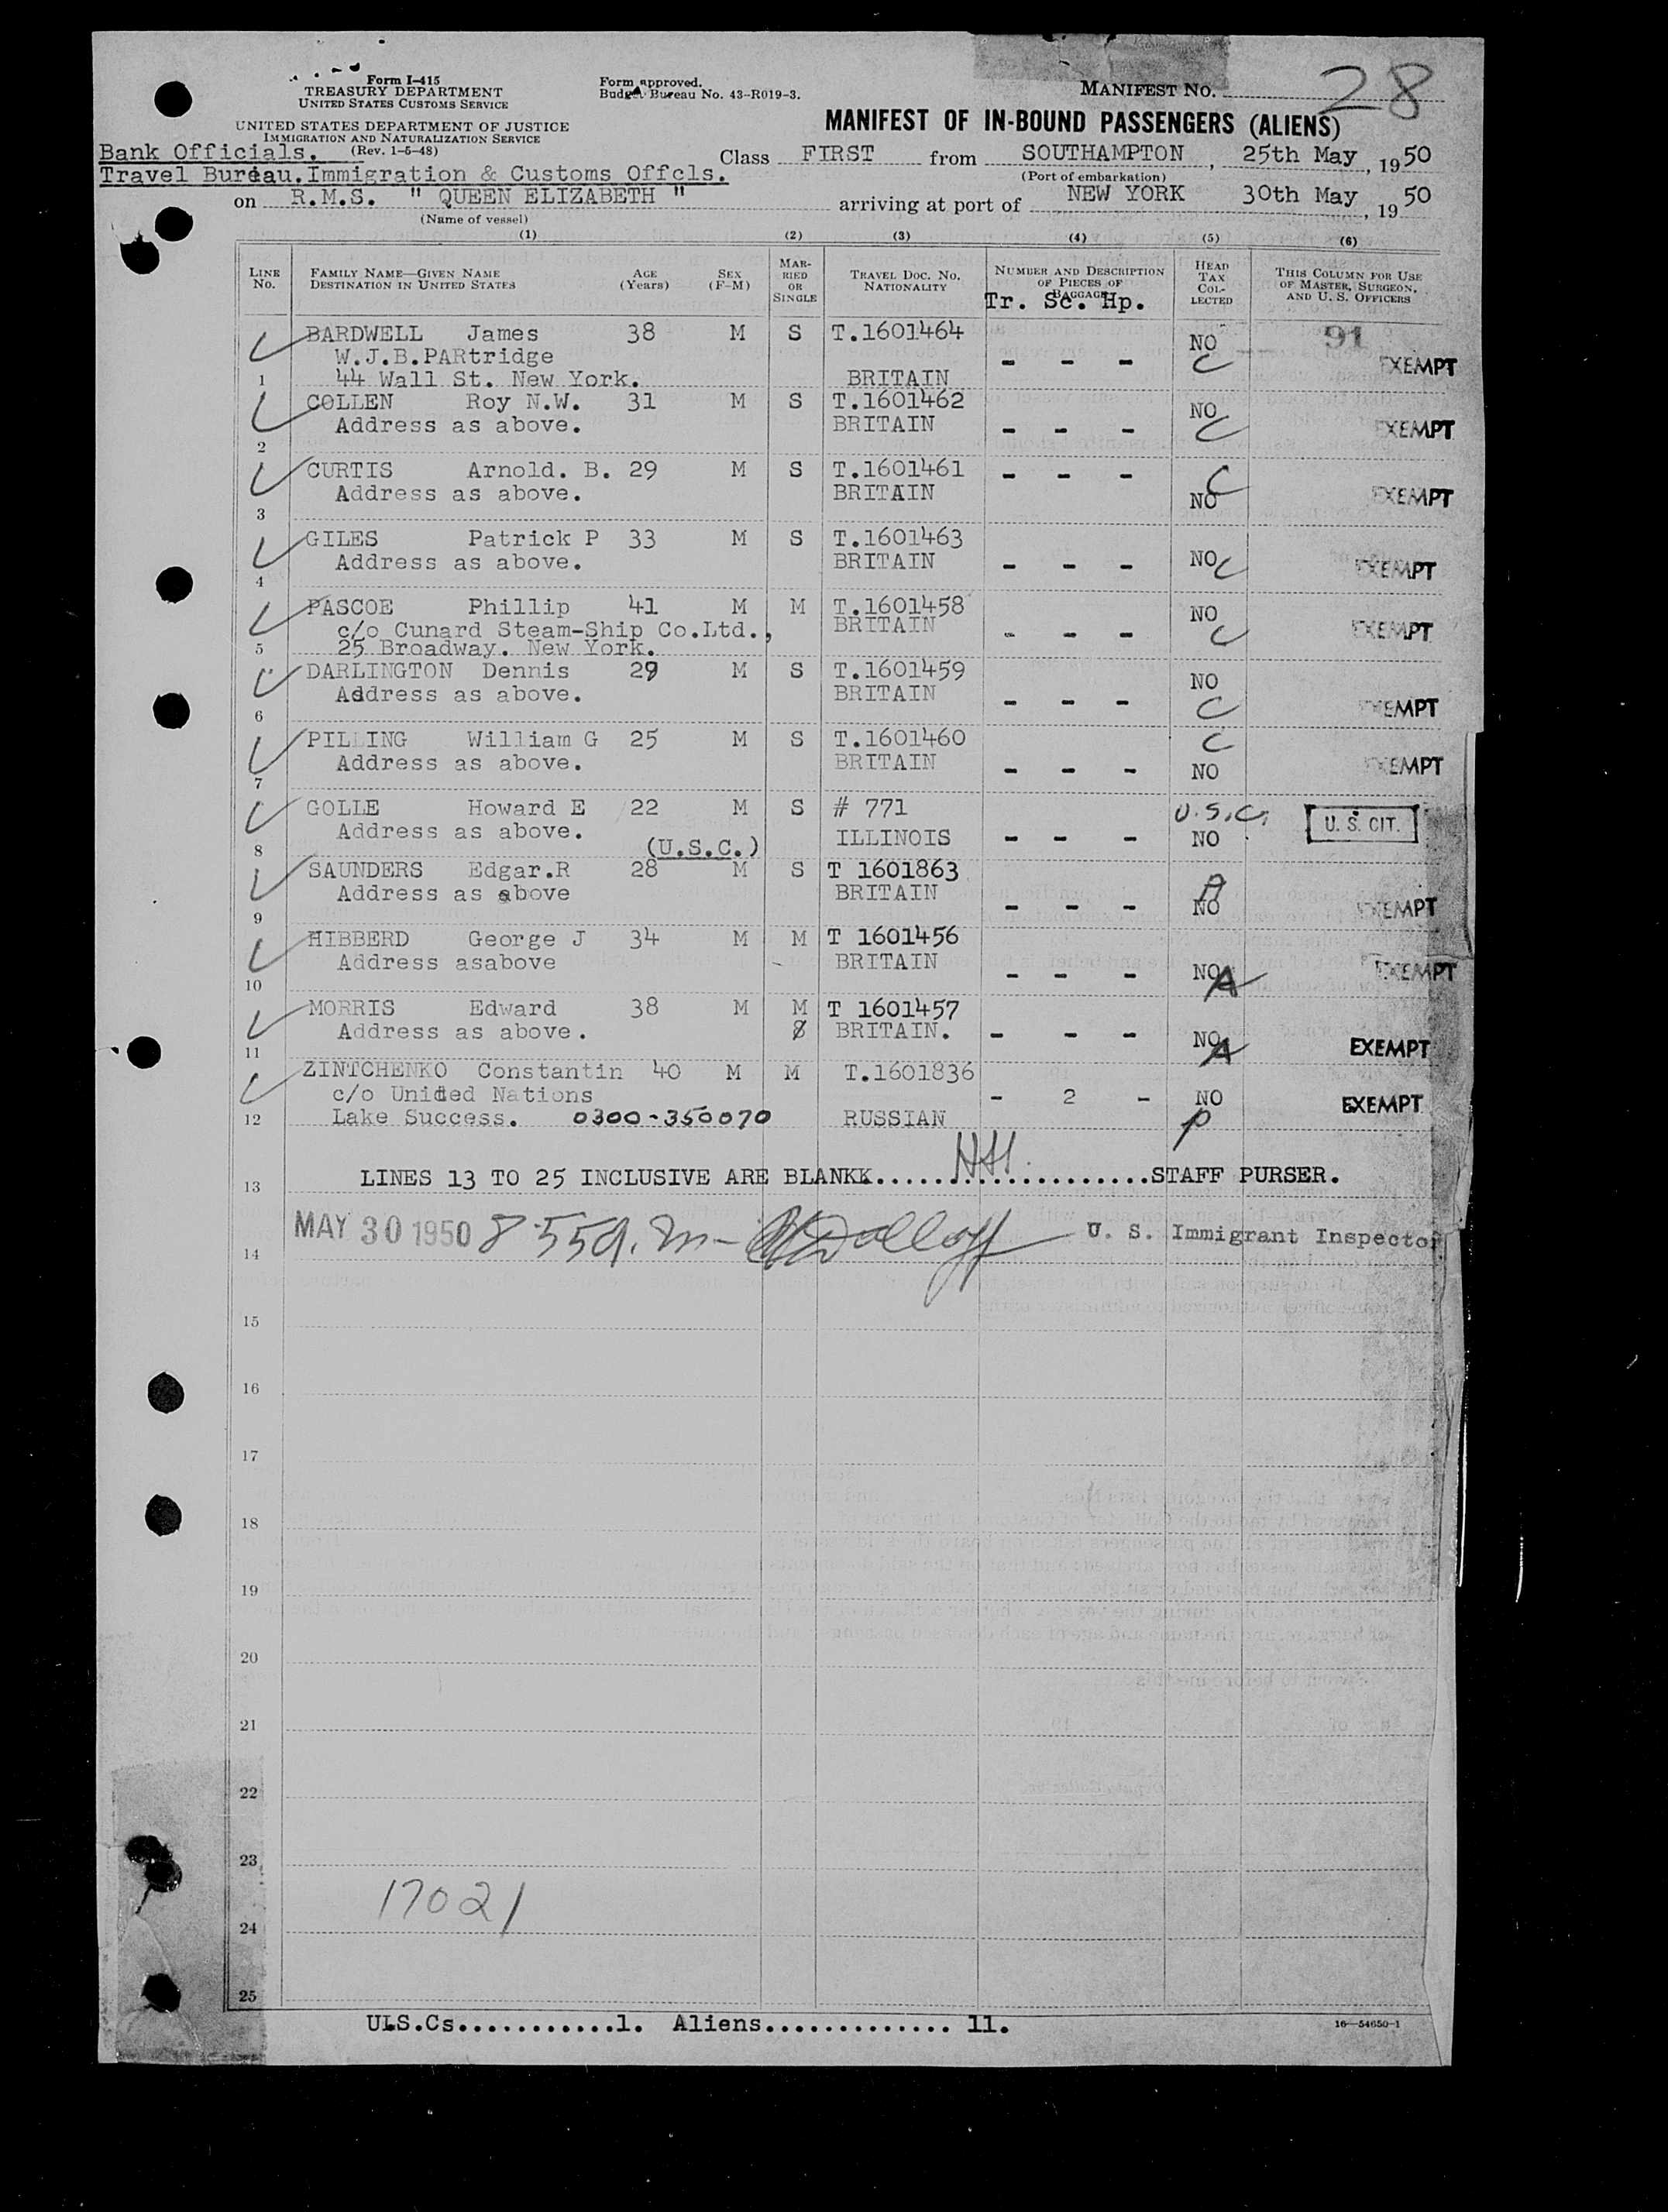 Form I-415
TREASURY DEPARTMENT
UNITED STATES CUSTOMS SERVICE
Form approved.
Budget Bureau No. 43-R019-3.
MANIFEST NO. 28
UNITED STATES DEPARTMENT OF JUSTICE
IMMIGRATION AND NATURALIZATION SERVICE
(Rev. 1-5-48)
MANIFEST OF IN-BOUND PASSENGERS (ALIENS)
Bank Officials.
Travel Bureau.Immigration & Customs Offcls.
Class FIRST from SOUTHAMPTON, 25th May, 1950
(Port of embarkation)
on R.M.S. " QUEEN ELIZABETH " arriving at port of NEW YORK 30th May, 1950
(Name of vessel)
(1) (2) (3) (4) (5) (6)
LINE No. FAMILY NAME—GIVEN NAME DESTINATION IN UNITED STATES AGE (Years) SEX (F-M) MARRIED OR SINGLE TRAVEL DOC. NO. NATIONALITY NUMBER AND DESCRIPTION OF PIECES OF BAGGAGE HEAD TAX COLLECTED THIS COLUMN FOR USE OF MASTER, SURGEON, AND U. S. OFFICERS
Tr. Sc. Hp.
BARDWELL James 38 M S T.1601464 NO 91
W.J.B.PARtridge - - - C EXEMPT
1 44 Wall St. New York. BRITAIN
COLLEN Roy N.W. 31 M S T.1601462 NO
Address as above. BRITAIN - - - C EXEMPT
2
CURTIS Arnold. B. 29 M S T.1601461 - - - C
Address as above. BRITAIN NO EXEMPT
3
GILES Patrick P 33 M S T.1601463
Address as above. BRITAIN - - - NO C EXEMPT
4
PASCOE Phillip 41 M M T.1601458 NO
c/o Cunard Steam-Ship Co.Ltd., BRITAIN - - - C EXEMPT
5 25 Broadway. New York.
DARLINGTON Dennis 29 M S T.1601459 NO
Address as above. BRITAIN - - - C EXEMPT
6
PILLING William G 25 M S T.1601460 C
Address as above. BRITAIN - - - NO EXEMPT
7
GOLLE Howard E 22 M S # 771 U.S.C. U. S. CIT.
Address as above. ILLINOIS - - - NO
8 (U.S.C.)
SAUNDERS Edgar.R 28 M S T 1601863
Address as above BRITAIN - - - NO EXEMPT
9
HIBBERD George J 34 M M T 1601456
Address asabove BRITAIN - - - NO A EXEMPT
10
MORRIS Edward 38 M M T 1601457
Address as above. BRITAIN. - - - NO A EXEMPT
11
ZINTCHENKO Constantin 40 M M T.1601836
c/o United Nations - 2 - NO EXEMPT
12 Lake Success. 0300-350070 RUSSIAN P
13 LINES 13 TO 25 INCLUSIVE ARE BLANKK.........................STAFF PURSER.
MAY 30 1950 8 55 a.m - U. S. Immigrant Inspector
14
15
16
17
18
19
20
21
22
23
17021
24
25
U.S.Cs............1. Aliens.............. 11.
16—54650-1